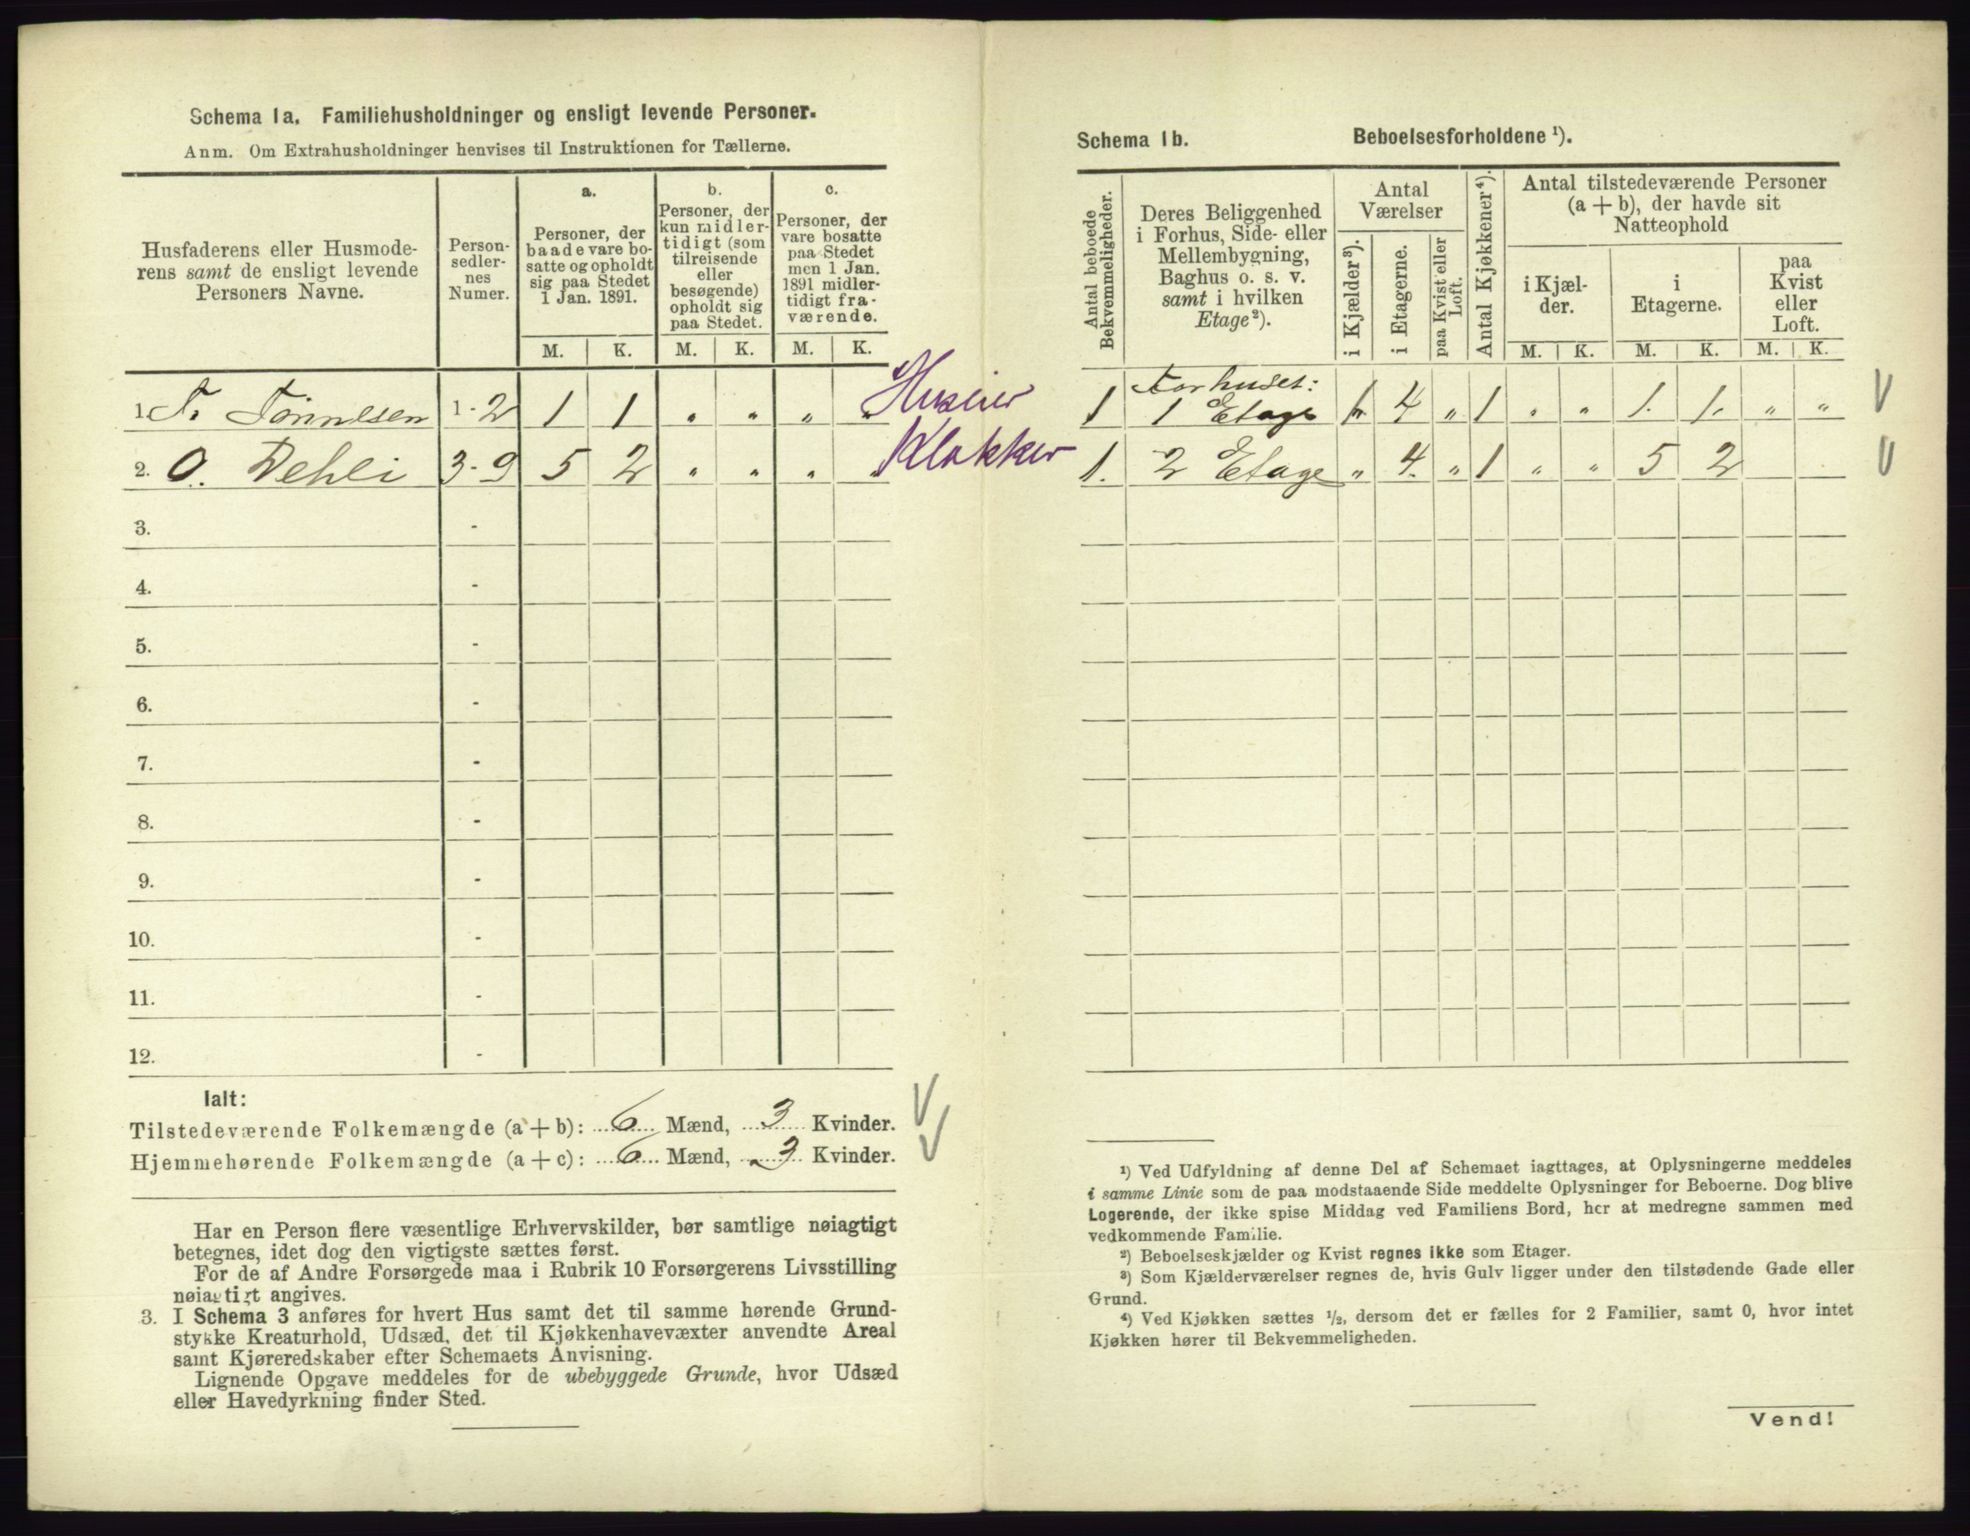 Schema 1a. Familiehusholdninger og ensligt levende Personer.
Anm. Om Extrahusholdninger henvises til Instruktionen for Tællerne.
Husfaderens eller Husmode-
rens samt de ensligt levende
Personers Navne.
Person-
sedler-
nes
Numer.
a.
Personer, der
baade vare bo-
satte og opholdt
sig paa Stedet
1 Jan. 1891.
b.
Personer, der
kun midler-
tidigt (som
tilreisende
eller
besøgende)
opholdt sig
paa Stedet.
c.
Personer, der
vare bosatte
paa Stedet
men 1 Jan.
1891 midler-
tidigt fra-
værende.
M. K. M. K. M. K.
1. T. Tønnesen 1-2 1 1 " " " " Huseier
2. O. Dehli 3-9 5 2 " " " " Klokker
3. -
4. -
5. -
6. -
7. -
8. -
9. -
10. -
11. -
12. -
Ialt:
Tilstedeværende Folkemængde (a+b): 6 Mænd, 3 Kvinder.
Hjemmehørende Folkemængde (a+c): 6 Mænd, 3 Kvinder.
Har en Person flere væsentlige Erhvervskilder, bør samtlige nøiagtigt
betegnes, idet dog den vigtigste sættes først.
For de af Andre Forsørgede maa i Rubrik 10 Forsørgerens Livsstilling
nøiagtigt angives.
3. I Schema 3 anføres for hvert Hus samt det til samme hørende Grund-
stykke Kreaturhold, Udsæd, det til Kjøkkenhavevæxter anvendte Areal
samt Kjøreredskaber efter Schemaets Anvisning.
Lignende Opgave meddeles for de ubebyggede Grunde, hvor Udsæd
eller Havedyrkning finder Sted.
Schema 1b. Beboelsesforholdene ¹).
Antal beboede
Bekvemmeligheder.
Deres Beliggenhed
i Forhus, Side- eller
Mellembygning,
Baghus o. s. v.
samt i hvilken
Etage²).
Antal
Værelser
i Kjælder³).
i Etagerne.
paa Kvist eller
Loft.
Antal Kjøkkener⁴).
Antal tilstedeværende Personer
(a + b), der havde sit
Natteophold
i Kjæl-
der.
i
Etagerne.
paa
Kvist
eller
Loft.
M. K. M. K. M. K.
Forhuset:
1 1 Etage 4 " 1 " " 1. 1. " "
1. 2 Etage " 4. " 1 " " 5 2
¹) Ved Udfyldning af denne Del af Schemaet iagttages, at Oplysningerne meddeles
i samme Linie som de paa modstaaende Side meddelte Oplysninger for Beboerne. Dog blive
Logerende, der ikke spise Middag ved Familiens Bord, her at medregne sammen med
vedkommende Familie.
²) Beboelseskjælder og Kvist regnes ikke som Etager.
³) Som Kjælderværelser regnes de, hvis Gulv ligger under den tilstødende Gade eller
Grund.
⁴) Ved Kjøkken sættes ½, dersom det er fælles for 2 Familier, samt 0, hvor intet
Kjøkken hører til Bekvemmeligheden.
Vend!